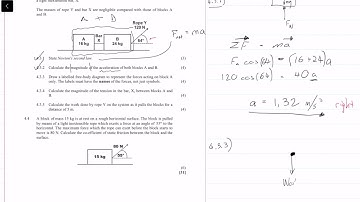 The masses of rope Y and bar X are negligible compared with those of blocks A and B.
A + B
Rope Y
120 N
A
16 kg
Bar
X
B
24 kg
64°
4.3.1 State Newton's second law
4.3.2 Calculate the magnitude of the acceleration of both blocks A and B.
4.3.3 Draw a labelled free-body diagram to represent the forces acting on block A only.
4.3.4 Calculate the magnitude of the tension in the bar, X, between blocks A and B.
4.3.5 Calculate the work done by rope Y on the system as it pulls the blocks for a distance of 5 m.
A block of mass 15 kg is at rest on a rough horizontal surface. The block is pulled by means of a light inextensible rope which exerts a force at an angle of
to the horizontal. The maximum force which the rope can exert before the block starts to move is 80 N. Calculate the coefficient of static friction between the block and the surface.
80 N
15 kg
F_N
ΣF = ma
= (16+24)a
120 cos(64) = 40a
a = 1,32 m/s² right
6.5.3)